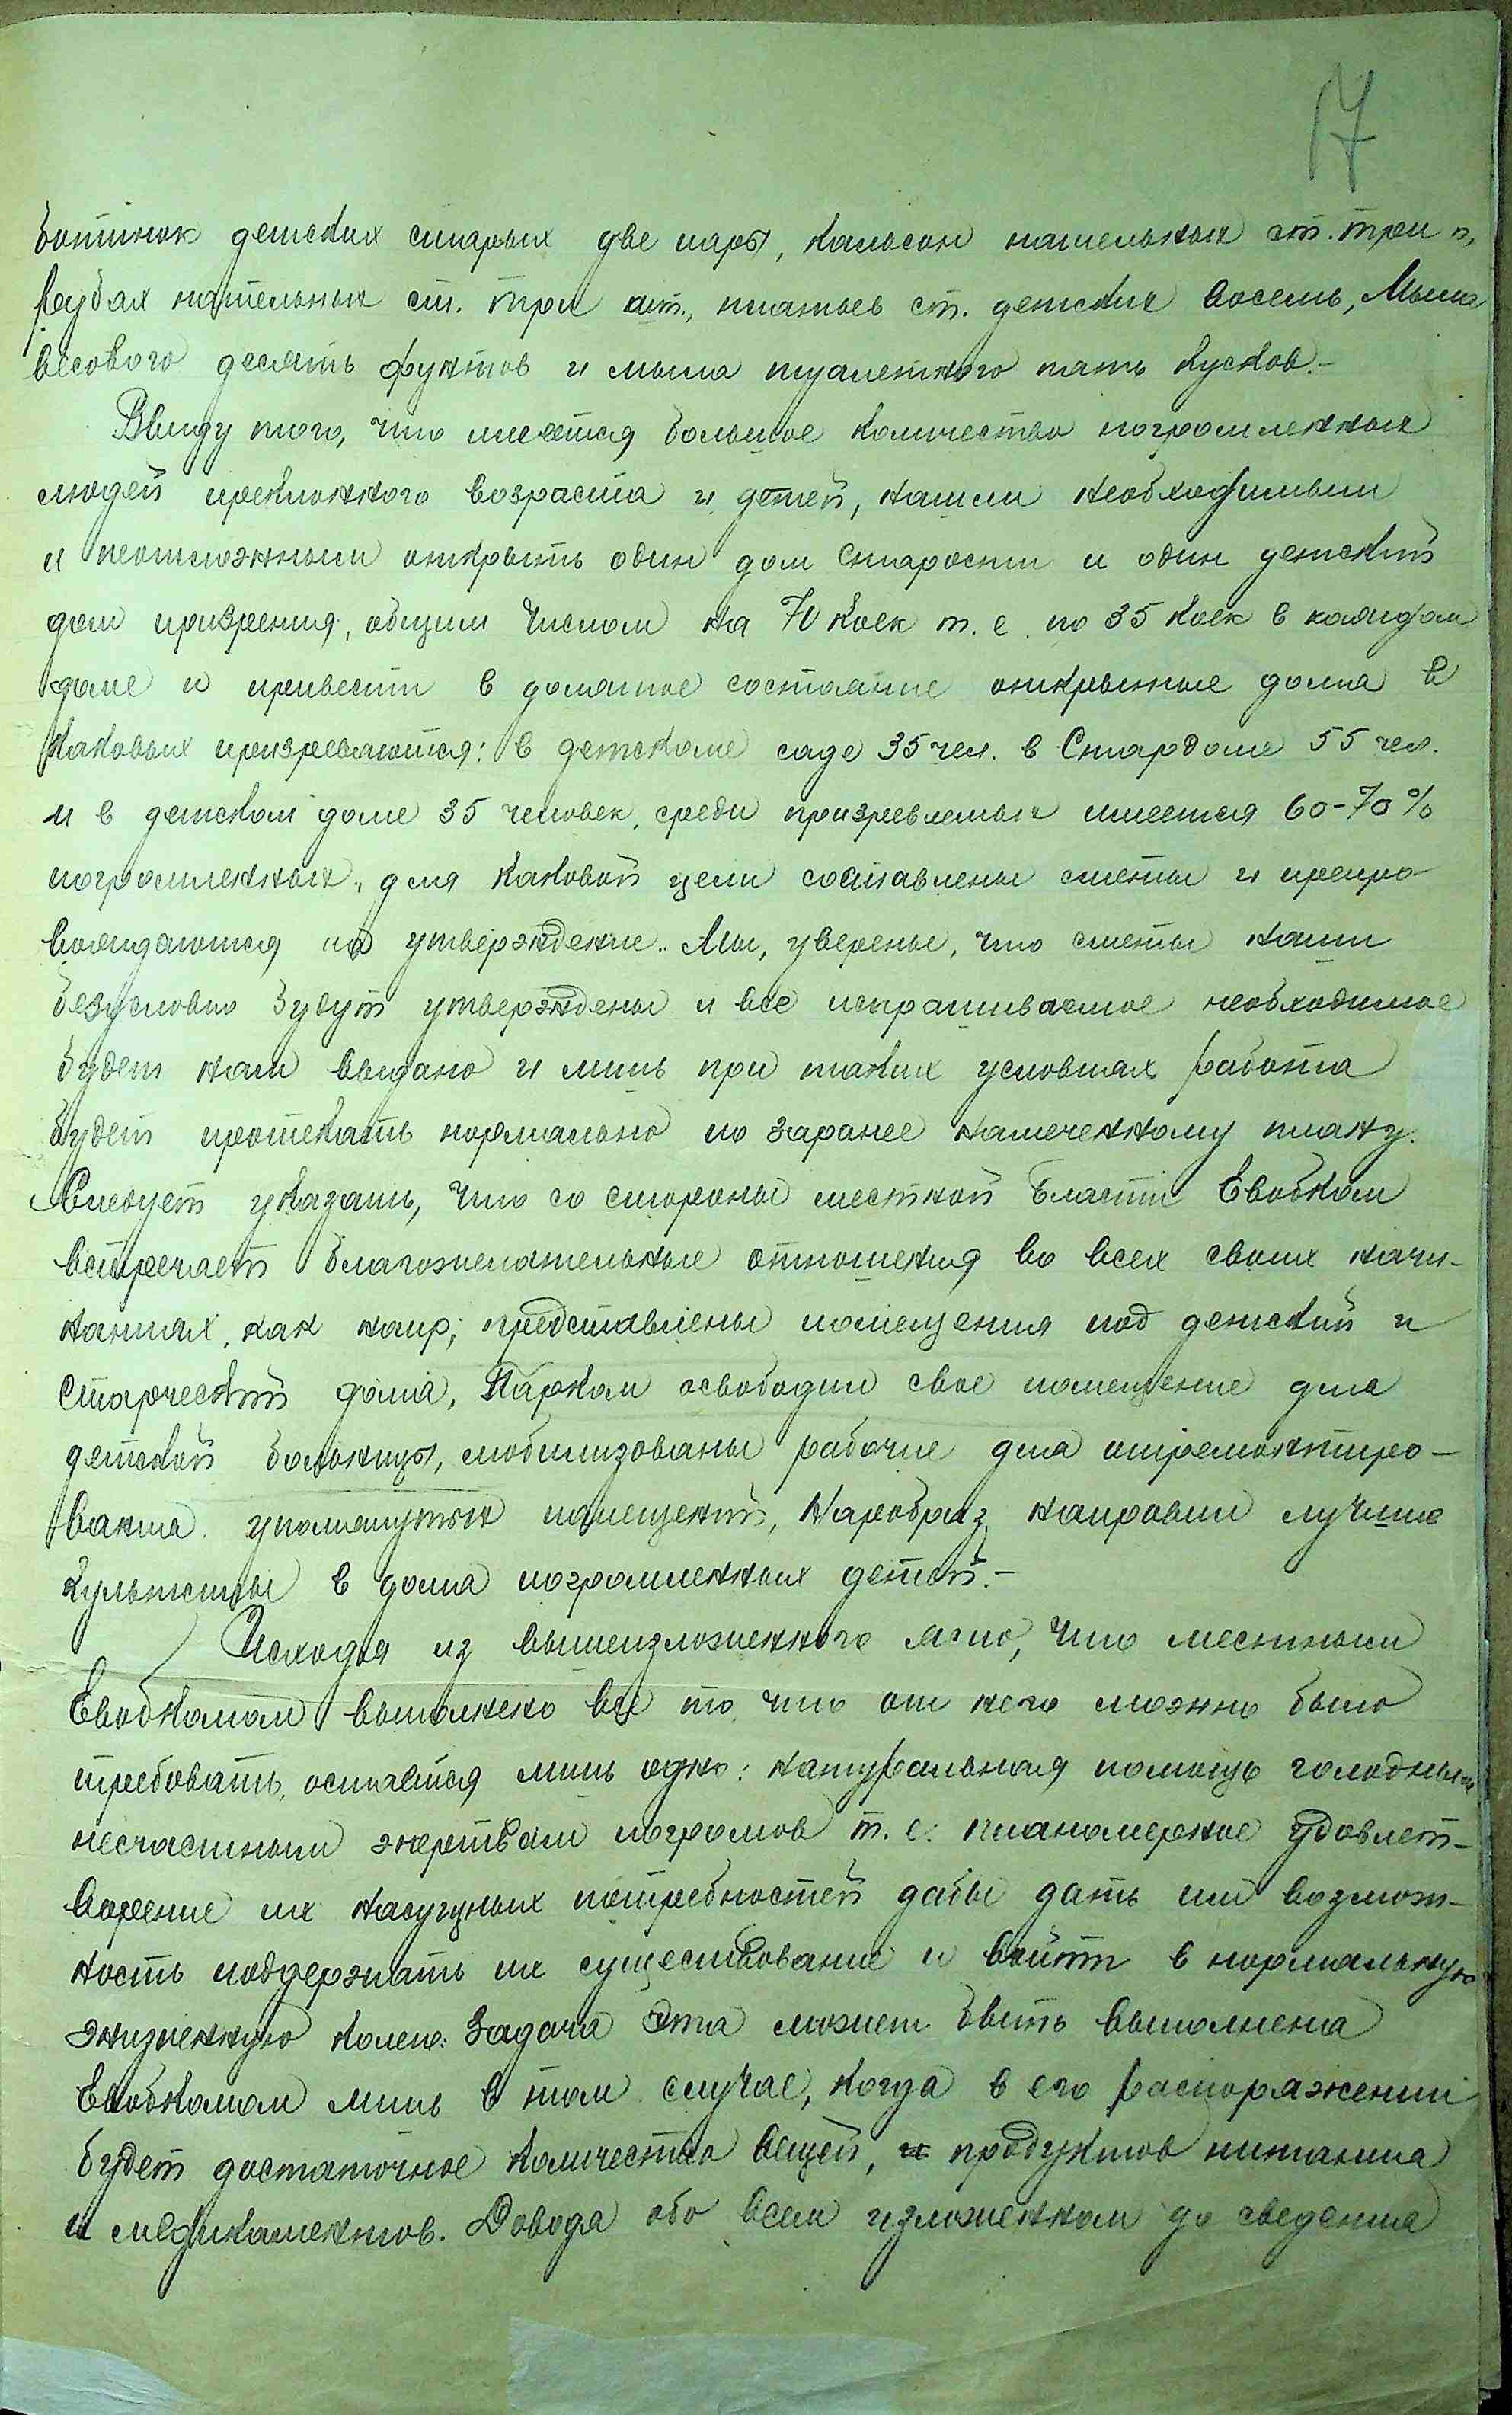 17
ботинок детских старых две пары, кальсон нательных ст. три п,
рубах нательных ст. три шт., платьев ст. детских восемь, Мыла
весового десять фунтов и мыла туалетного пять кусков.-
Ввиду того, что имеется большое количество погромленных
людей преклонного возраста и детей, нашли необходимым
и неотложным открыть один дом старости и один детский
дом призрения, общим числом на 70 коек т. е. по 35 коек в каждом
доме и привести в должное состояние открытые дома в
каковых призреваются: в детском саде 35 чел. в Стардоме 55 чел.
и в детском доме 35 человек, среди призреваемых имеется 60-70%
погромленных, для каковой цели составлены сметы и препро-
вождаются на утверждение. Мы, уверены, что сметы наши
безусловно будут утверждены и все испрашиваемое необходимое
будет нам выдано и лишь при таких условиях работа
будет протекать нормально по заранее намеченному плану.
Следует указать, что со стороны местной власти Евобком
встречает благожелательные отношения во всех своих начи-
наниях, как напр; предоставлены помещения под детский и
старческий дома, Парком освободил свое помещение для
детской больницы, мобилизованы рабочие для отремонтиро-
вания упомянутых помещений, Наробраз направил лучшие
культсилы в дома погромленных детей.-
Исходя из вышеизложенного ясно, что местным
Евобкомом выполнено все то что от него можно было
требовать, остается лишь одно: натуральная помощь голодным
несчастным жертвам погромов т. е: планомерное удовлет-
ворение их насущных потребностей дабы дать им возмож-
ность поддержать их существование и войти в нормальную
жизненную колею. Задача эта может быть выполнена
Евобкомом лишь в том случае, когда в его распоряжении
будет достаточное количество вещей, продуктов питания
и медикаментов. Доводя обо всем изложенном до сведения